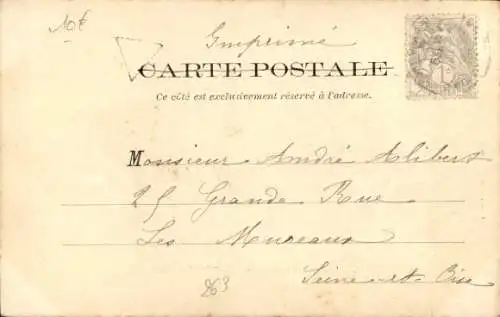 10 €
Imprimé
CARTE POSTALE
Ce côté est exclusivement réservé à l'adresse.
Monsieur André Alibert
25 Grande Rue
Les Mureaux
Seine-et-Oise
263